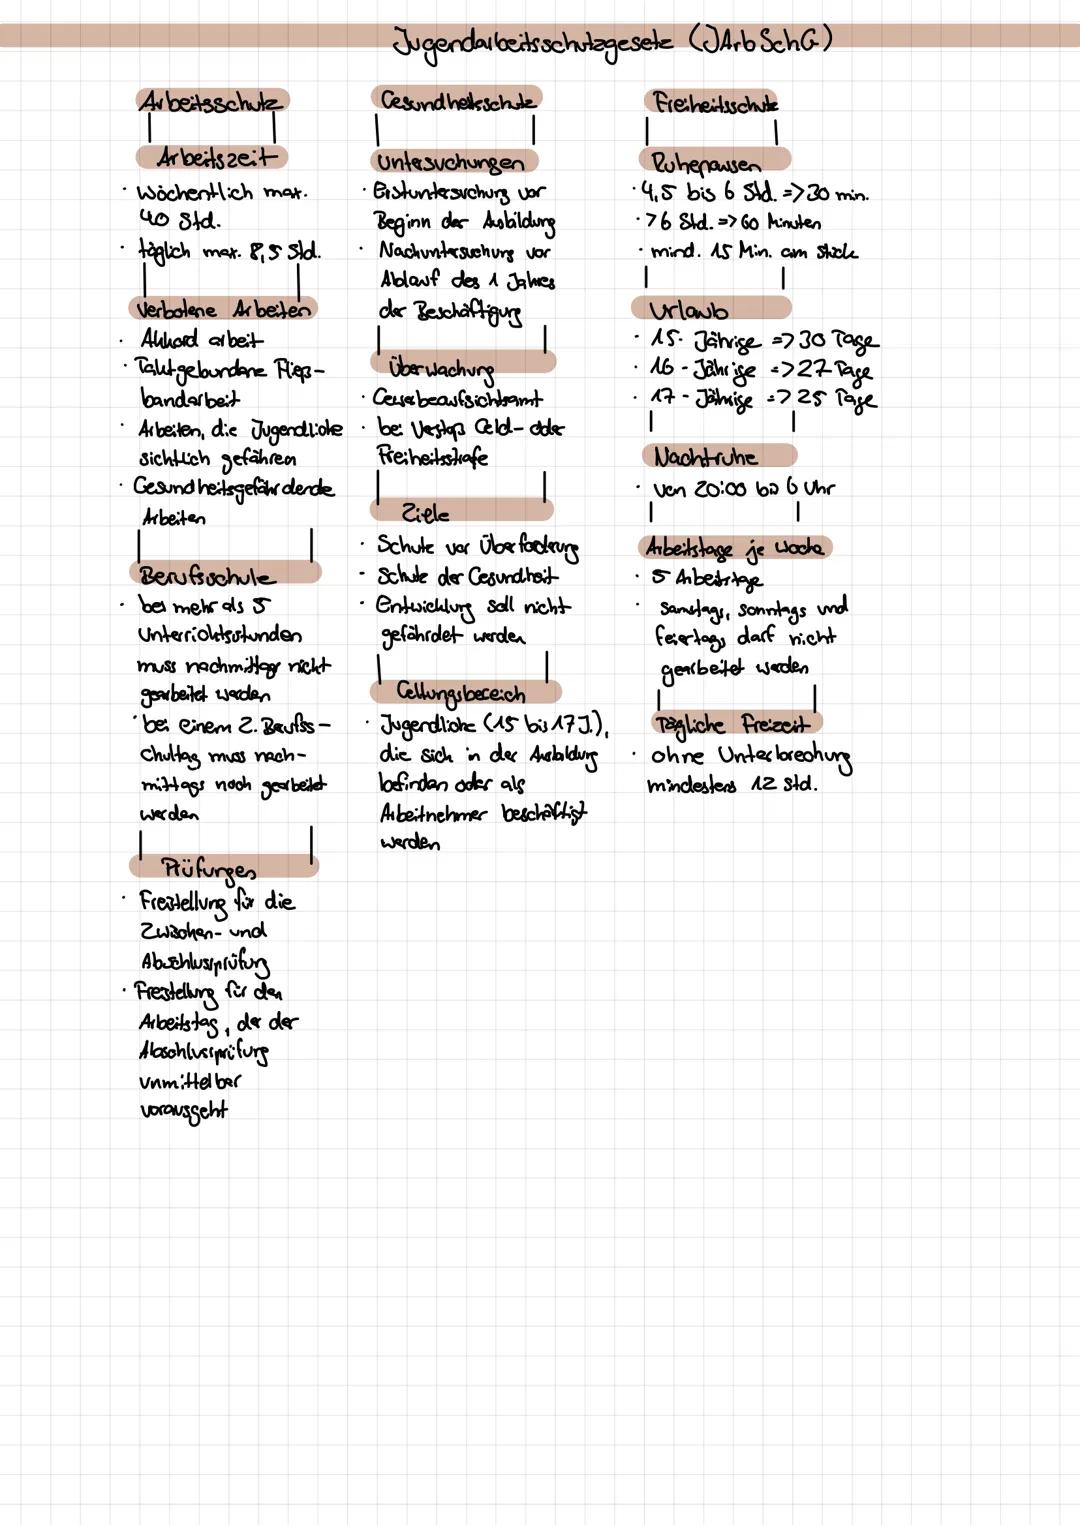 Jugendarbeitsschutzgesetz (JArbSchG)
Arbeitsschutz
Arbeitszeit
· Wöchentlich max.
40 Std.
· täglich max. 8,5 Std.
Verbotene Arbeiten
· Akkord arbeit
· Taktgebundene Fließ-
bandarbeit
· Arbeiten, die Jugendliche
sichtlich gefähren
· Gesundheitsgefährdende
Arbeiten
Berufsschule
· bei mehr als 5
Unterrichtsstunden
muss nachmittags nicht
gearbeitet werden
· bei einem 2. Berufss-
chultag muss nach-
mittags noch gearbeitet
werden
Prüfungen
· Freistellung für die
Zwischen- und
Abschlussprüfung
· Freistellung für den
Arbeitstag, der der
Abschlussprüfung
unmittelbar
vorausgeht
Gesundheitsschutz
Untersuchungen
· Erstuntersuchung vor
Beginn der Ausbildung
· Nachuntersuchung vor
Ablauf des 1 Jahres
der Beschäftigung
Überwachung
· Gewerbeaufsichtsamt
· bei Verstoß Geld- oder
Freiheitsstrafe
Ziele
· Schutz vor Überforderung
· Schutz der Gesundheit
· Entwicklung soll nicht
gefährdet werden
Geltungsbereich
· Jugendliche (15 bis 17 J.),
die sich in der Ausbildung
befinden oder als
Arbeitnehmer beschäftigt
werden
Freiheitsschutz
Ruhepausen
· 4,5 bis 6 Std. => 30 min.
· >6 Std. => 60 Minuten
· mind. 15 Min. am stück
Urlaub
· 15- Jährige => 30 Tage
· 16 - Jährige => 27 Tage
· 17 - Jährige => 25 Tage
Nachtruhe
· Von 20:00 bis 6 Uhr
Arbeitstage je Woche
· 5 Arbeitstage
· samstags, sonntags und
feiertags darf nicht
gearbeitet werden
Tägliche Freizeit
· ohne Unterbrechung
mindestens 12 Std.